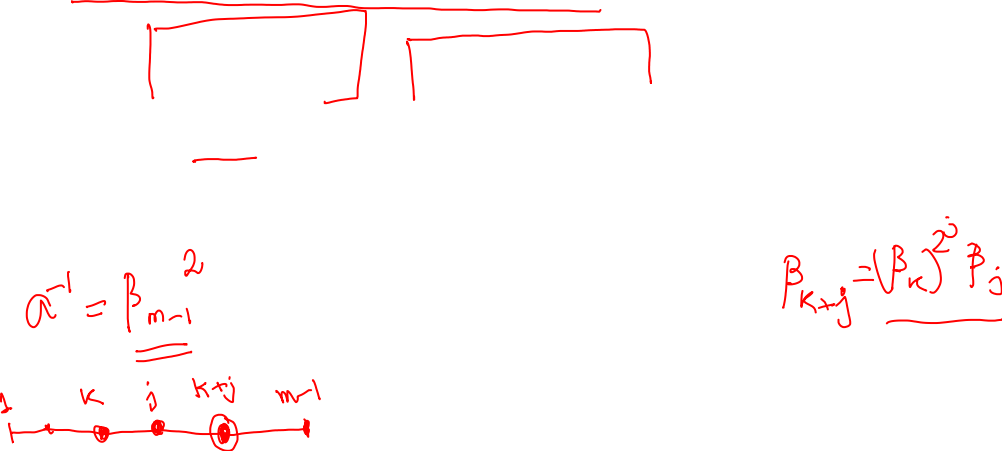 a⁻¹ = β_{m-1}²
β_{k+j} = (β_k)^{2^j} β_j
1 k j k+j m-1